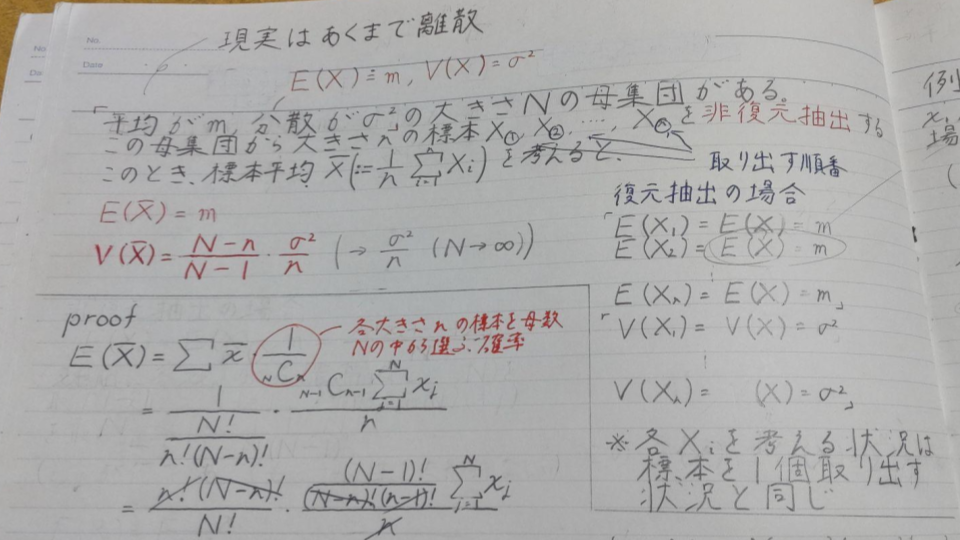 No.
Date
現実はあくまで離散
E(X)=m, V(X)=σ²
「平均がm, 分散がσ²の大きさNの母集団がある。
この母集団から大きさnの標本X①, X②, ‥‥, Xⓝを非復元抽出する
このとき、標本平均 X̄(:=1/n Σ_{i=1}^{n} Xi)を考えると、
取り出す順番
E(X̄)=m
V(X̄)=(N-n)/(N-1)・σ²/n (→ σ²/n (N→∞))
復元抽出の場合
「E(X₁)=E(X)=m
E(X₂)=E(X)=m
E(Xₙ)=E(X)=m」
「V(X₁)=V(X)=σ²
V(Xₙ)= (X)=σ²」
※各Xiを考える状況は
標本を1個取り出す
状況と同じ
proof
E(X̄)=Σ x̄ 1/NCn
各大きさnの標本を母数
Nの中から選ぶ確率
= 1/(N!/(n!(N-n)!))・(N-1Cn-1 Σ_{i=1}^{N} xi)/n
= (n!(N-n)!)/N!・((N-1)!/((N-n)!(n-1)!) Σ_{i=1}^{N} xi)/n
例
場
(